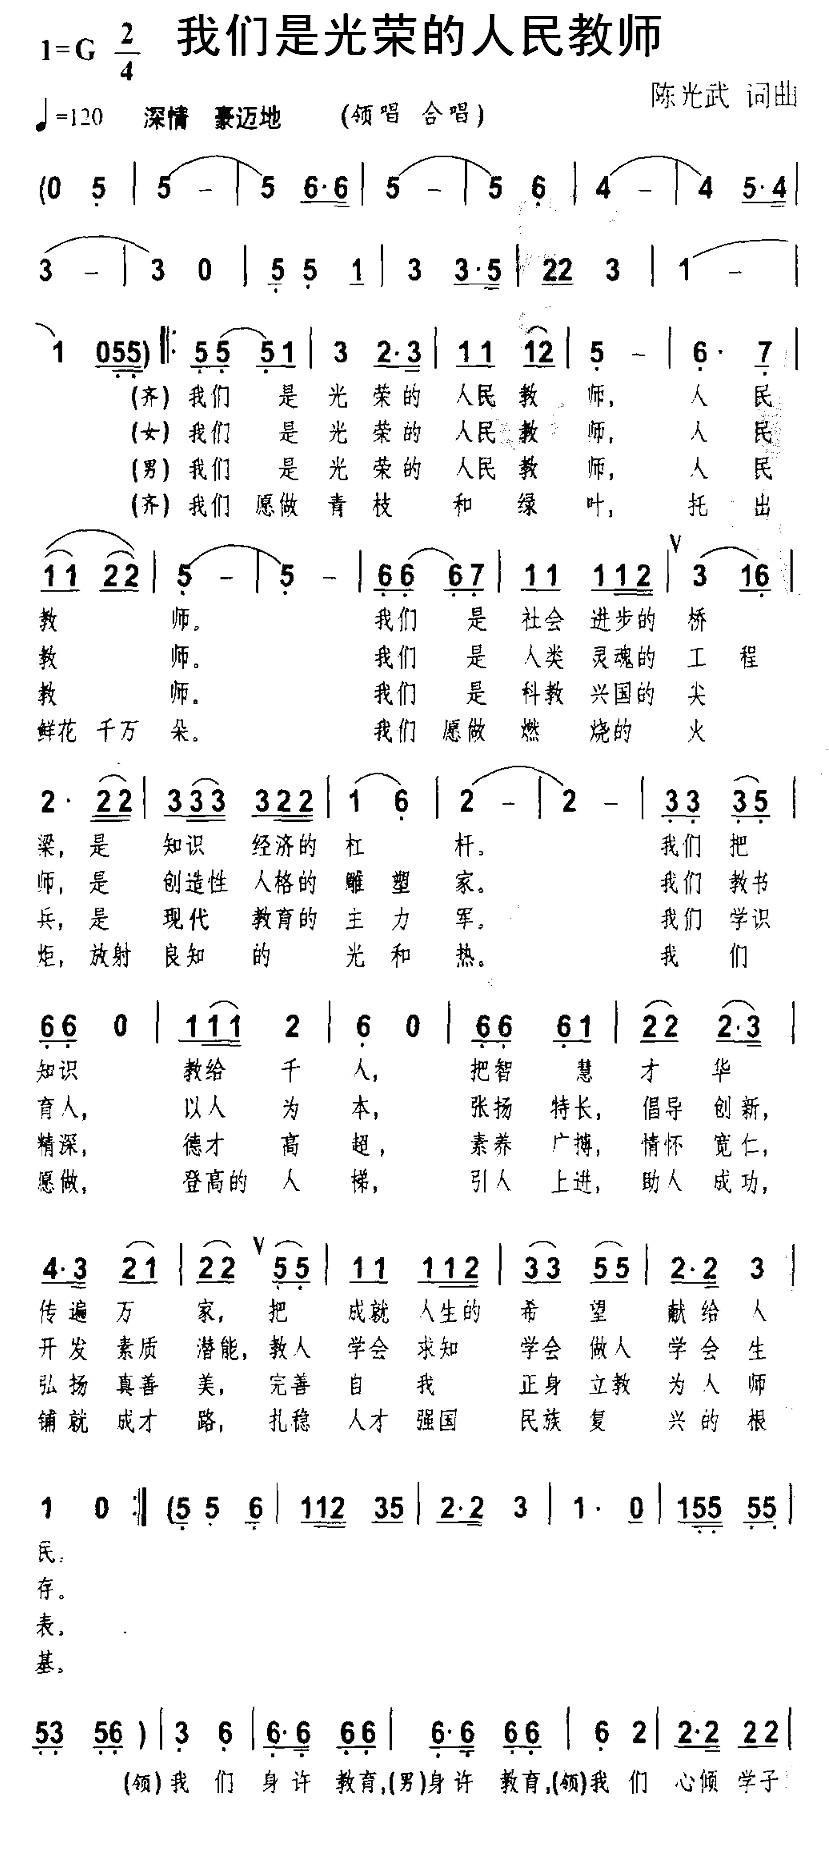 我们是光荣的人民教师
1=G 2/4
陈光武 词曲
♩=120 深情 豪迈地 (领唱 合唱)
(0 5 | 5 - | 5 6·6 | 5 - | 5 6 | 4 - | 4 5·4 |
3 - | 3 0 | 5 5 1 | 3 3·5 | 22 3 | 1 - |
1 055) |: 55 51 | 3 2·3 | 11 12 | 5 - | 6· 7 |
(齐)我们 是 光 荣的 人民 教 师, 人 民
(女)我们 是 光 荣的 人民 教 师, 人 民
(男)我们 是 光 荣的 人民 教 师, 人 民
(齐)我们 愿做 青 枝 和 绿 叶, 托 出
11 22 | 5 - | 5 - | 66 67 | 11 112 | V 3 16 |
教 师。 我们 是 社会 进步的 桥
教 师。 我们 是 人类 灵魂的 工 程
教 师。 我们 是 科教 兴国的 尖
鲜花 千万 朵。 我们 愿做 燃 烧的 火
2· 22 | 333 322 | 1 6 | 2 - | 2 - | 33 35 |
梁, 是 知识 经济的 杠 杆。 我们 把
师, 是 创造性 人格的 雕 塑 家。 我们 教书
兵, 是 现代 教育的 主 力 军。 我们 学识
炬, 放射 良知 的 光 和 热。 我 们
66 0 | 111 2 | 6 0 | 66 61 | 22 2·3 |
知识 教给 千 人, 把智 慧 才 华
育人, 以人 为 本, 张扬 特长, 倡导 创新,
精深, 德才 高 超, 素养 广搏, 情怀 宽仁,
愿做, 登高的 人 梯, 引人 上进, 助人 成功,
4·3 21 | 22 V 55 | 11 112 | 33 55 | 2·2 3 |
传遍 万 家, 把 成就 人生的 希 望 献给 人
开发 素质 潜能, 教人 学会 求知 学会 做人 学会 生
弘扬 真善 美, 完善 自 我 正身 立教 为人 师
铺就 成才 路, 扎稳 人才 强国 民族 复 兴的 根
1 0 :| (5 5 6 | 112 35 | 2·2 3 | 1· 0 | 155 55 |
民;
存。
表。
基。
53 56 ) | 3 6 | 6·6 66 | 6·6 66 | 6 2 | 2·2 22 |
(领)我 们 身许 教育,(男)身许 教育,(领)我 们 心倾 学子